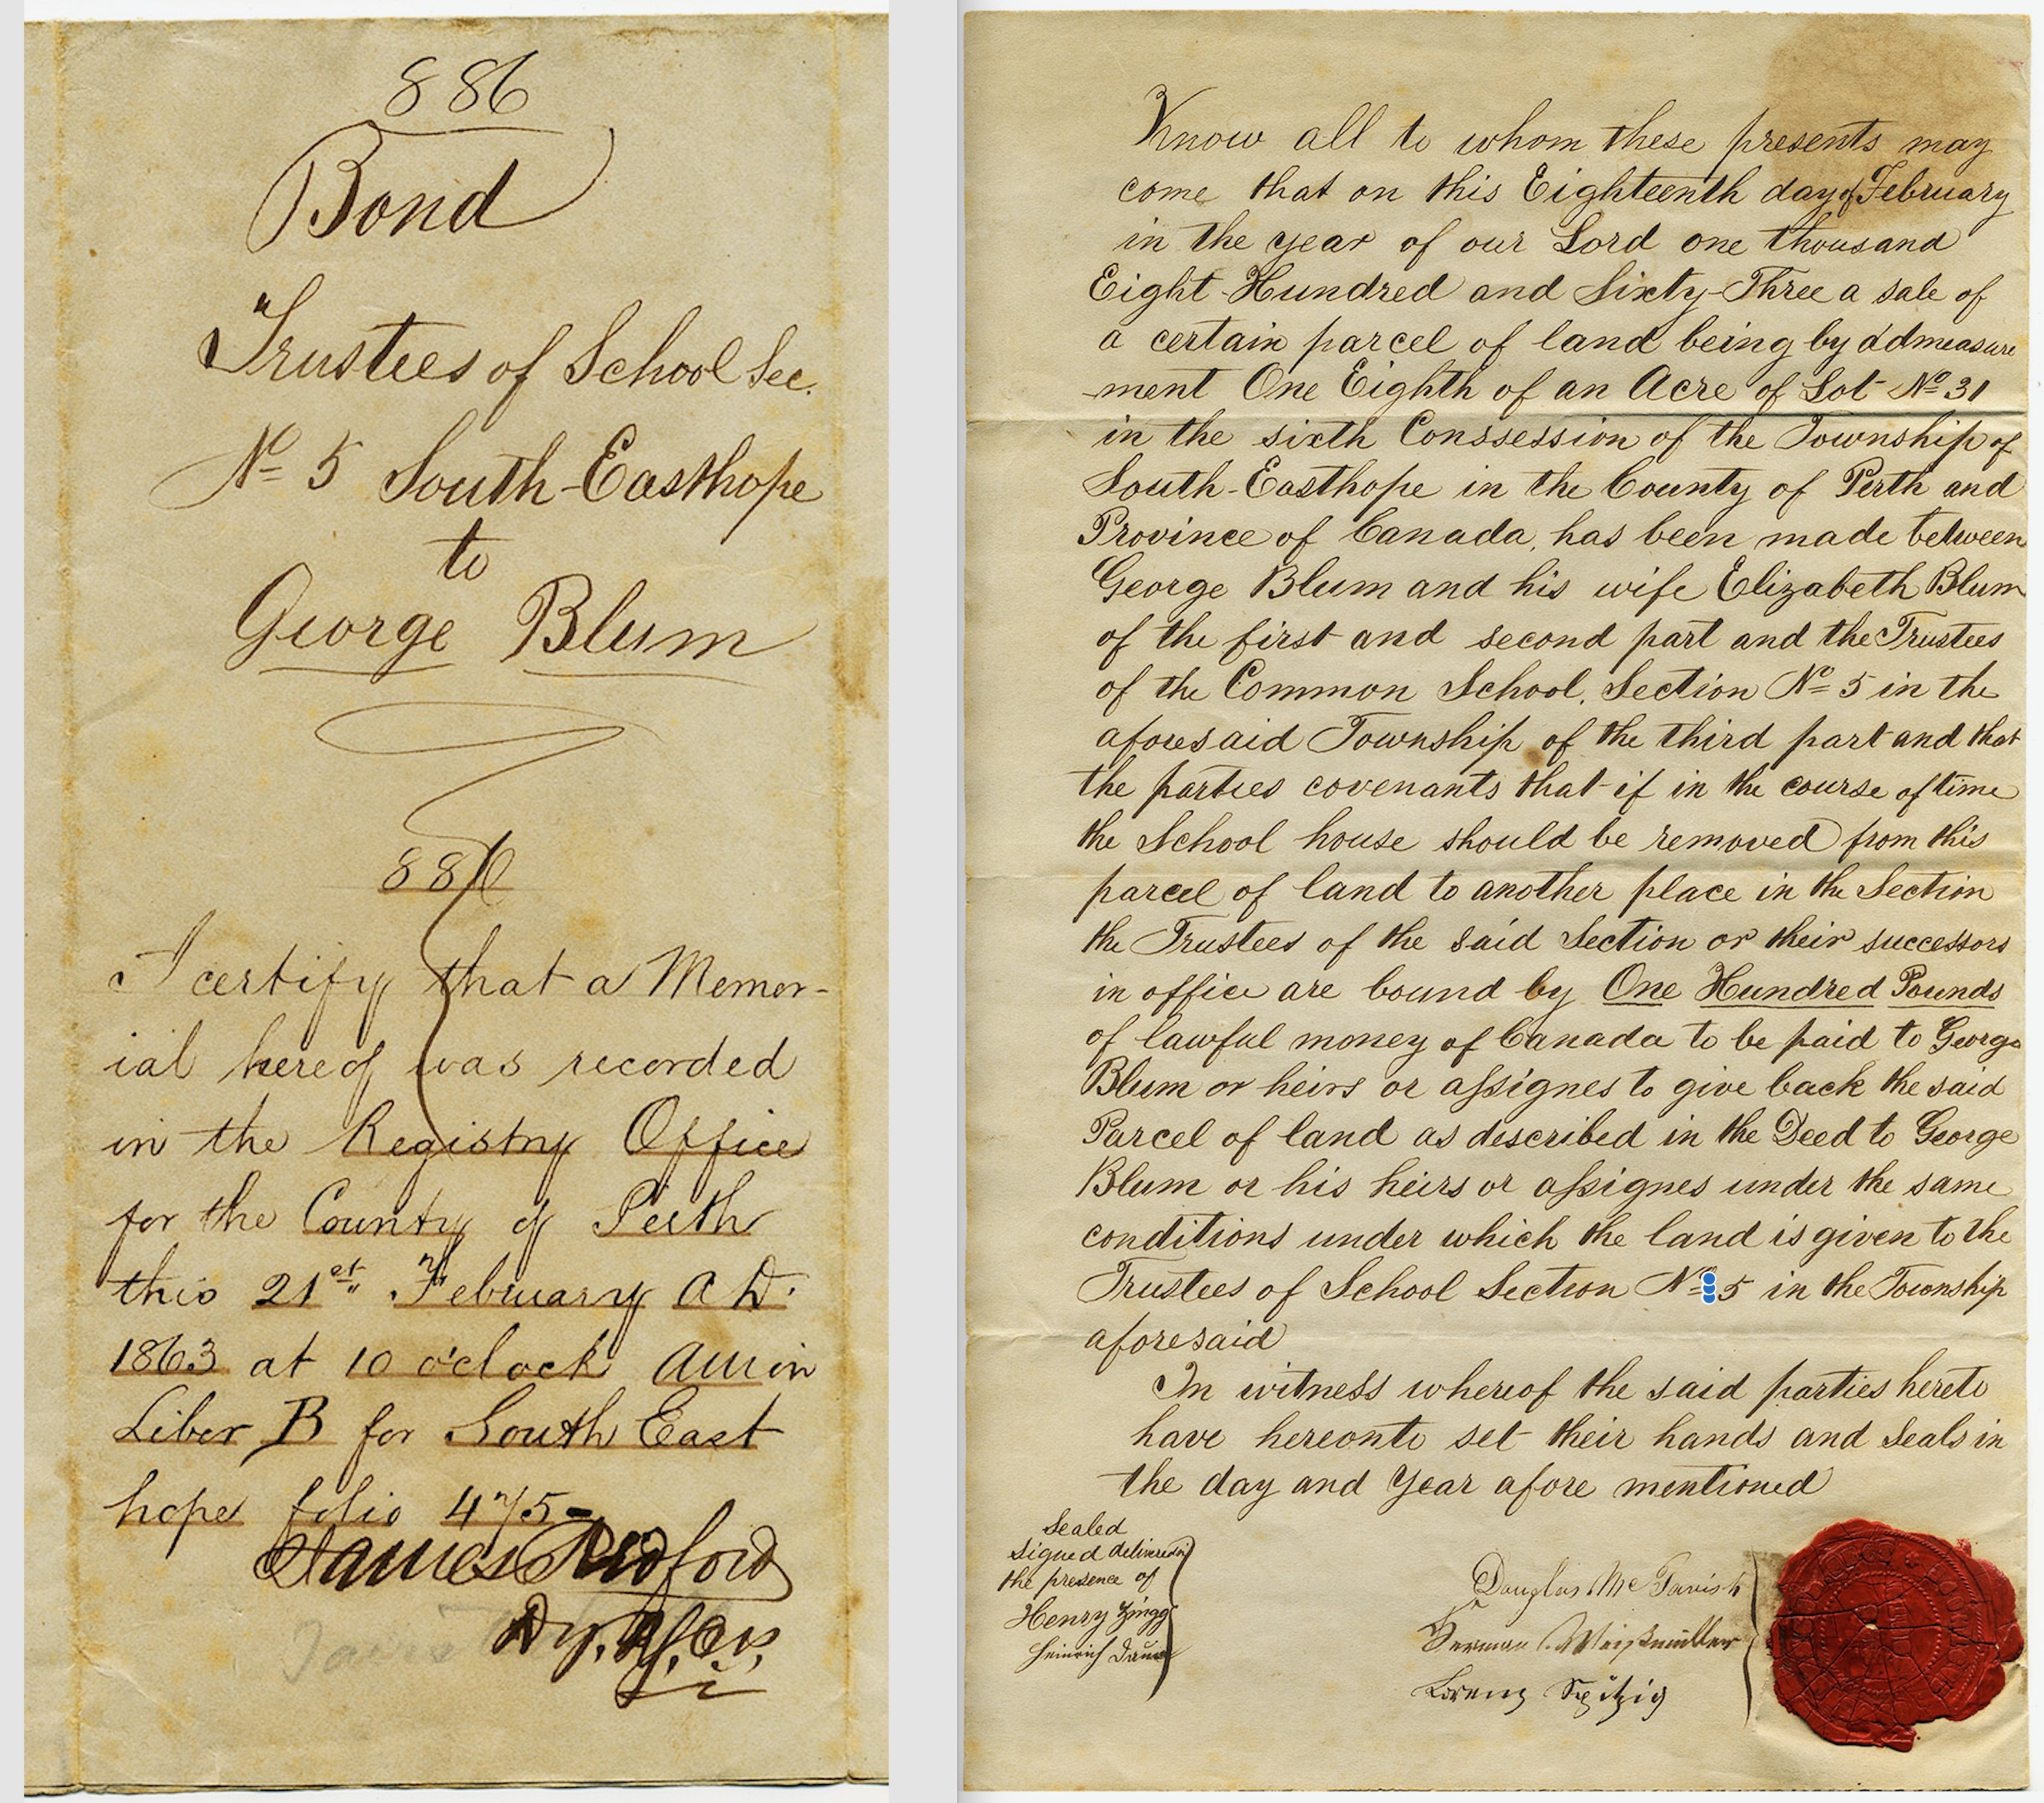 886
Bond
Trustees of School Sec.
No 5 South-Easthope
to
George Blum
886
I certify that a Memor-
ial hereof was recorded
in the Registry Office
for the County of Perth
this 21st February A.D.
1863 at 10 o'clock AM in
Liber B for South East
hope folio 475-
James Redford
Know all to whom these presents may
come that on this Eighteenth day of February
in the year of our Lord one thousand
Eight-Hundred and Sixty-Three a sale of
a certain parcel of land being by ddmeasure
-ment One Eighth of an Acre of Lot No 31
in the sixth Conssession of the Township of
South-Easthope in the County of Perth and
Province of Canada, has been made between
George Blum and his wife Elizabeth Blum
of the first and second part and the Trustees
of the Common School, Section No 5 in the
aforesaid Township of the third part and that
the parties covenants that if in the course of time
the School house should be removed from this
parcel of land to another place in the Section
the Trustees of the said Section or their successors
in office are bound by One Hundred Pounds
of lawful money of Canada to be paid to George
Blum or heirs or assignes to give back the said
Parcel of land as described in the Deed to George
Blum or his heirs or assignes under the same
conditions under which the land is given to the
Trustees of School Section No 5 in the Township
aforesaid
In witness whereof the said parties hereto
have hereonto set their hands and seals in
the day and Year afore mentioned
Sealed
Signed delivered in
the presence of
Henry Zingg
Heinrich
Douglas McTavish
Herman Weißmüller
Lorenz Spitzig